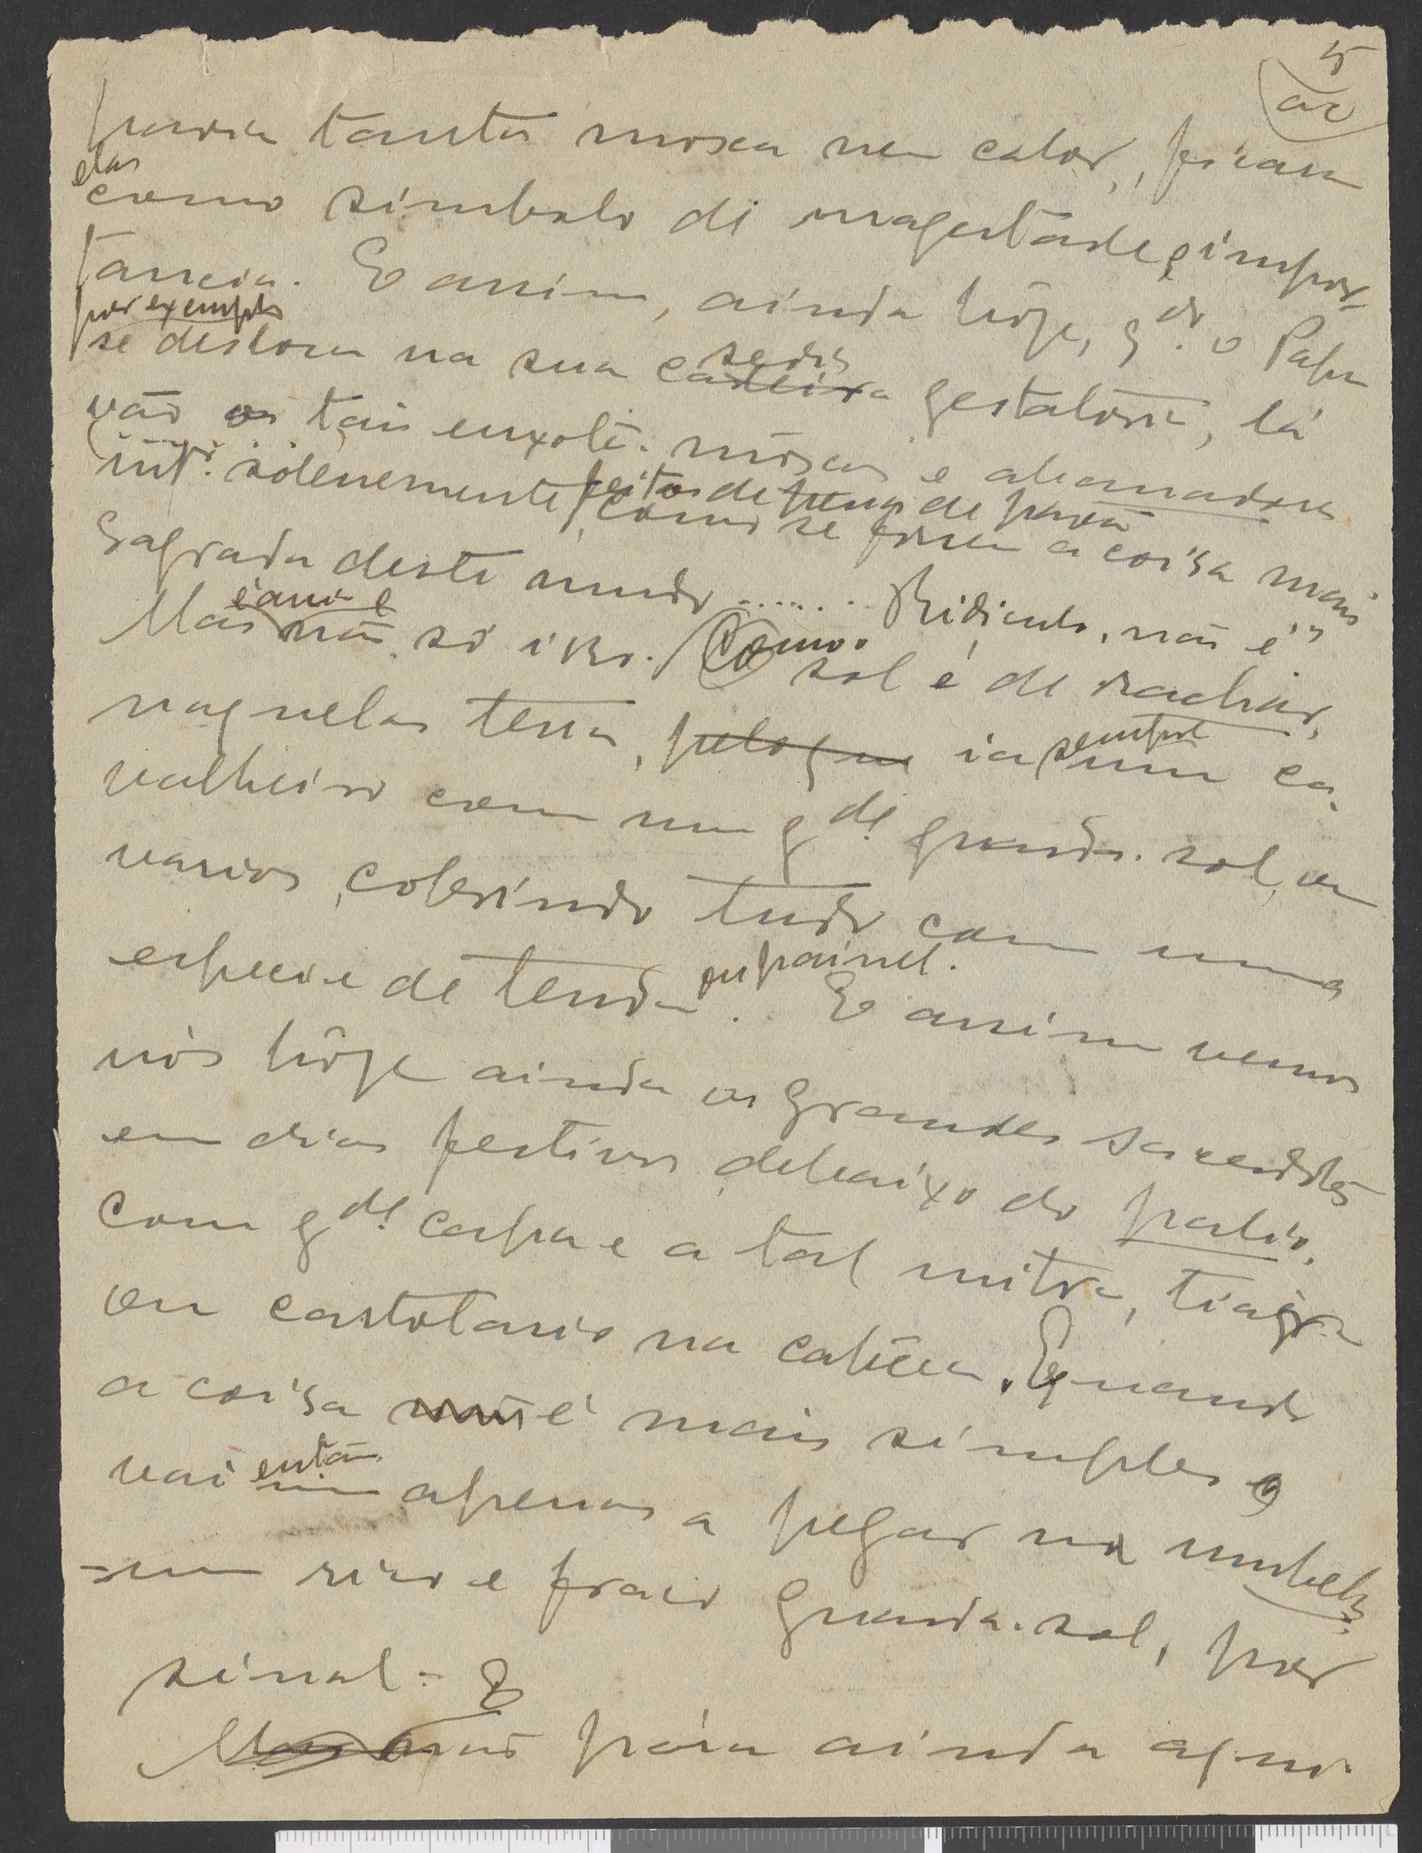 5
havia tanta mosca nem calor, ficam
elas
como simbolo de magestade e impor-
tancia. E assim, ainda hôje, qdo. o Papa
por exemplo
se desloca na sua cadeira gestatória, lá
sedia
vão os tais enxota-moscas e abanadores
mto. solenemente, como se fosse a coisa mais
feitos de penas de pavão
Sagrada deste mundo....... Ridiculo, não é?
Mas não só isso. Como o sol é de rachar,
naquelas terras, pelo que ia sempre um ca-
valheiro com um gde. guarda-sol, ou
varios, cobrindo tudo com uma
especie de tenda ou painel. E assim vemos
nós hôje ainda os Grandes sacerdotes
em dias festivos debaixo do palio,
com gde. capa e a tal mitra, tiara
ou cartolario na cabeça. E quando
a coisa é mais simples
vai então apenas a pegar na umbela,
-um rico e fraco Guarda-sol, por
sinal-
Mas não pára ainda aqui.